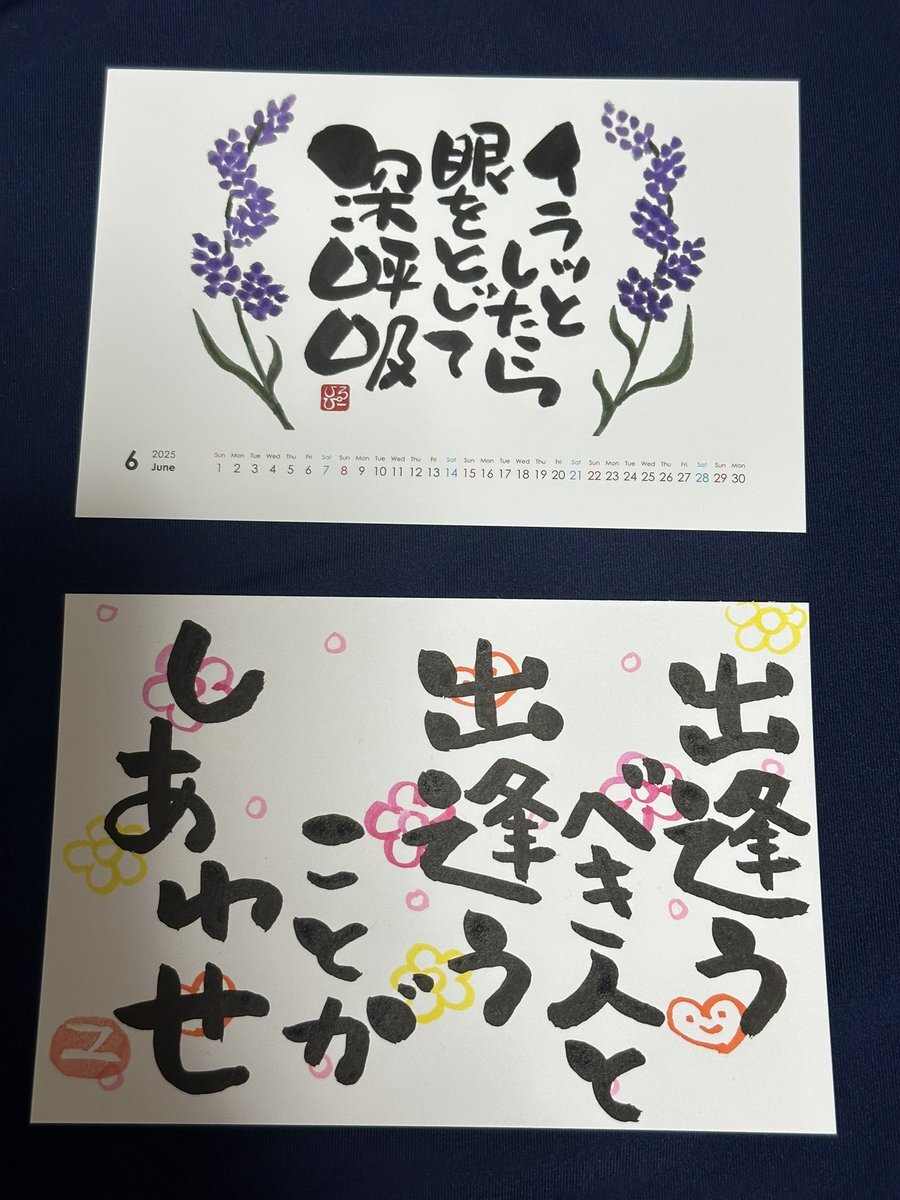 イラッと
したら
眼をとじて
深呼吸
6
2025
June
Sun Mon Tue Wed Thu Fri Sat Sun Mon Tue Wed Thu Fri Sat Sun Mon Tue Wed Thu Fri Sat Sun Mon Tue Wed Thu Fri Sat Sun Mon
1 2 3 4 5 6 7 8 9 10 11 12 13 14 15 16 17 18 19 20 21 22 23 24 25 26 27 28 29 30
出逢う
べき人と
出逢う
ことが
しあわせ